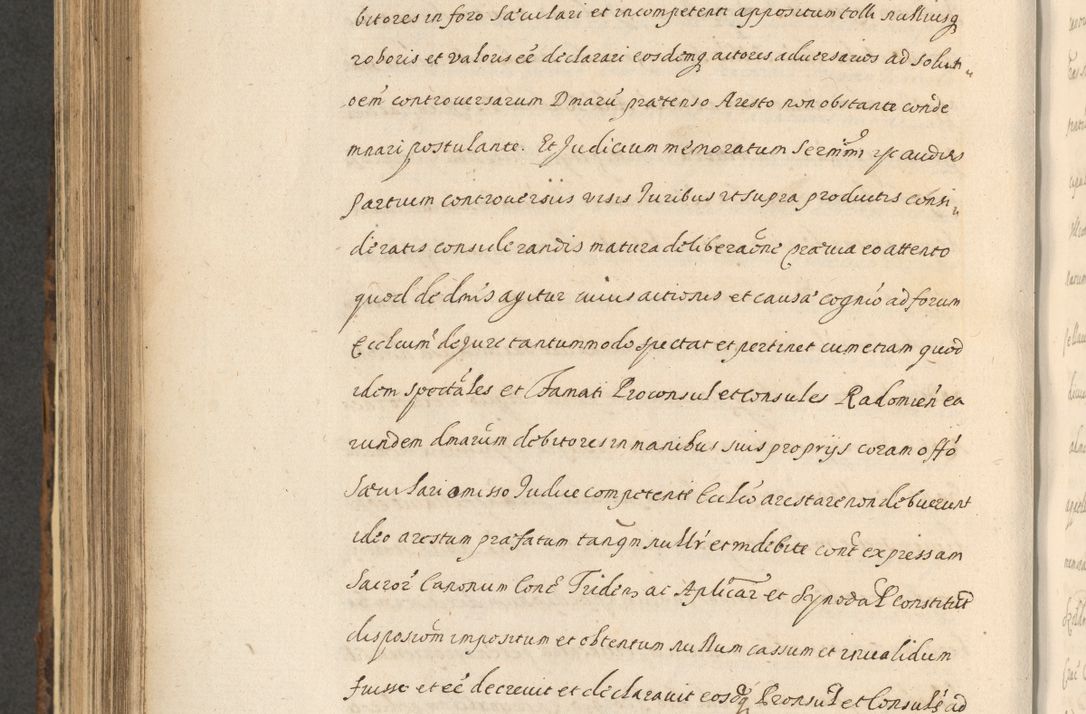 bitores in foro sæculari et incompetenti appositum tolli nulliusq
roboris et valoris eē declarari eosdemq actores adversarios ad soluti„
oem̃ controversarum Dmarũ prætenso Aresto non obstante conde
mnari postulante. Et Judicium memoratum Sermm̃i ipẽ auditis
Partium controversiis visis Juribus ut supra productis consi„
deratis considerandis matura deliberaõne prævia eo attento
quod de dmis agitur cuius actionis et causæ cognio ad forum
Eccleum̃ de Jure tantummodo spectat et pertinet cum etiam quod
idem spectãles et Famati Proconsul et Consules Radomien̄ ea
rundem dmarum debitores in manibus suis proprijs coram offõ
Sæculari omisso Judice competenti Eccleõ arestare non debuerunt
ideo arestum præfatum tanq̃m nulli˜ et indebite cont̃ expressam
Sacror̃ Canonum Conc̃ Triden̄ ac Aplicar̃ et Synodal̃ Constitut̃
disposiom̃ impositum et obtentum nullum cassum et invalidum
fuisse et eē decrevit et declaravit eosdq Pronsul̃ et Consulẽs ad